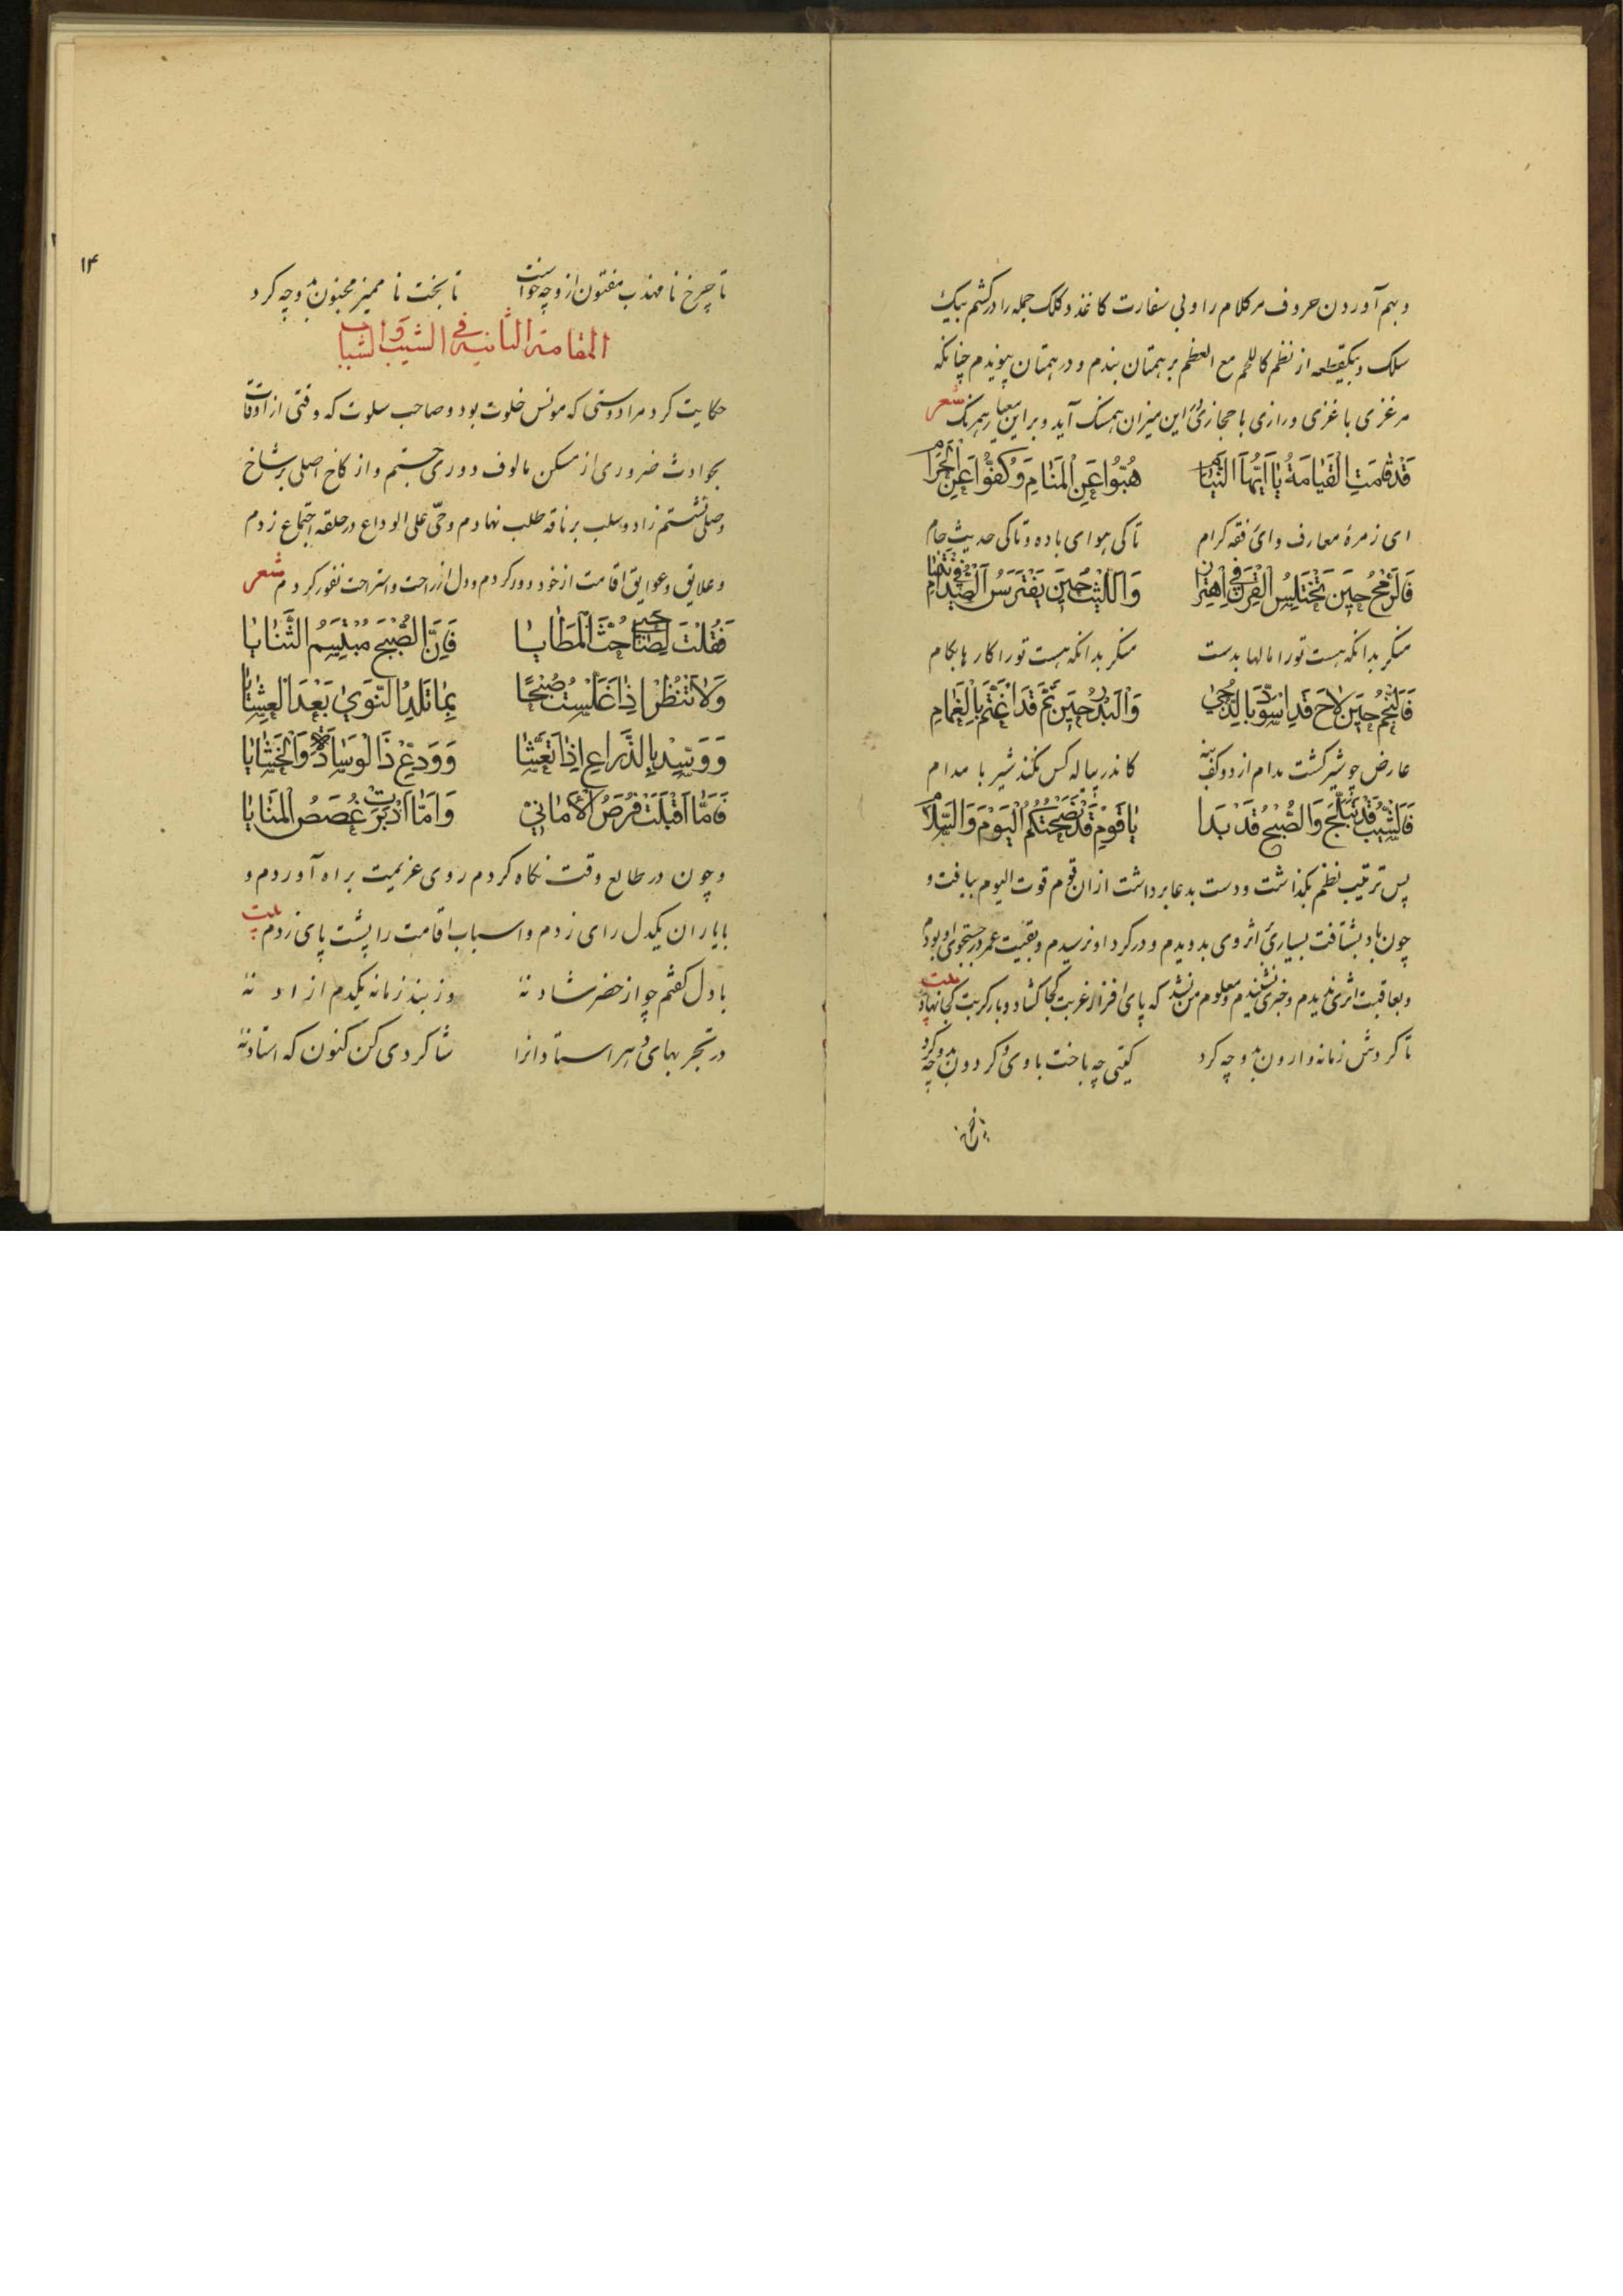 وبهم آوردن حروف مر کلام را و بی سفارت کاغذ و کلک جمله را درکشم بیک
سلک و بیکقطعه از نظم کاللحم مع العظم بر همتان بندم و در همتان پیوندم چنانکه
مرغزی با غزی و رازی با حجازی در این میزان همسنگ آید و بر این معیار همرنگ شعر
قَدْ قٰامَتِ الْقَیٰامَةُ یٰا اَیُّهَا النِّیٰام هُبُّوا عَنِ الْمَنٰامِ وَکُفُّوا عَنِ الْحَرٰام
ای زمرهٔ معارف وای فقه کرام تا کی هوای باده و تا کی حدیث جام
فَالرُّمْحُ حینَ تَخْتَلِسُ الْقِرْنَ فی اهْتِزٰاز وَاللَّیْثُ حینَ یَفْتَرِسُ الصَّیْدَ فی ابْتِسٰام
منکر بدانکه هست تو را مالها بدست منکر بدانکه هست تو را کارها بکام
فَالنَّجْمُ حینَ لٰاحَ قَدِ اسْوَدَّ بِالدُّجیٰ وَالْبَدْرُ حینَ تَمَّ قَدْ اغْتَمَّ بِالْغَمٰامِ
عارض چو شیر کشت مدام از دو کف بنه کاندر پیاله کس نکند شیر با مدام
فَالشَّیْبُ قَدْ تَبَلَّجَ وَالصُّبْحُ قَدْ بَدٰا یٰا قَوْمِ قَدْ نَصَحْتُکُمُ الْیَوْمَ وَالسَّلٰام
پس ترتیب نظم بکذاشت و دست بدعا برداشت از ان قوم قوت الیوم بیافت و
چون باد بشتافت بسیاری اثر وی بدویدم و در کرد او نرسیدم و بقیت عمر در جستجوی او بودم
و بعاقبت اثری ندیدم و خبری نشنیدم و معلوم من نشد که پای افزار غربت کجا کشاد و بار کربت کجا نهاد بیت
تا کردش زمانه وارون بدو چه کرد کیتی چه باخت با وی و کردون بدو چه کرد
تا چرخ
۱۴
تا چرخ نامهذب مفتون ازو چه خواست تا بخت نا ممیز مجنون بدو چه کرد
المقامة الثانیة فی الشیب و الشباب
حکایت کرد مرا دوستی که مونس خلوت بود و صاحب سلوت که وقتی از اوقات
بحوادث ضروری از مسکن مالوف دوری جستم و از کاخ اصلی بر شاخ
وصلی نشستم زاد و سلب بر ناقه طلب نهادم و حیّ علی الوداع در حلقه اجتماع زدم
و علایق و عوایق اقامت از خود دور کردم و دل از راحت و استراحت نفور کردم شعر
فَقُلْتَ لِصٰاحِبی حُثَّ الْمَطٰایٰا فَاِنَّ الصُّبْحَ مُبْتَسِمُ الثَّنٰایٰا
وَلٰا تَنْظُرْ اِذٰا غَلَّسْتَ صُبْحًا بِمٰا تَلِدُ النَّویٰ بَعْدَ الْعِشٰایٰا
وَ وَسِّدْ بِالذِّرٰاعِ اِذٰا تَعَشّٰا وَ وَدِّعْ ذَا الْوِسٰادَةِ وَالْحَشٰایٰا
فَاِمّٰا اَقْبَلَتْ فُرَصُ الْاَمٰانیْ وَاِمّٰا اَدْبَرَتْ غُصَصُ الْمَنٰایٰا
و چون در طالع وقت نکاه کردم روی عزیمت براه آوردم و
با یاران یکدل رای زدم و اسباب اقامت را پشت پای زدم بیت
با دل کفتم چو از حضر شاد نهٔ وز بند زمانه یکدم ازاد نهٔ
در تجربهای دهر استادانرا شاکردی کن کنون که استاد نهٔ